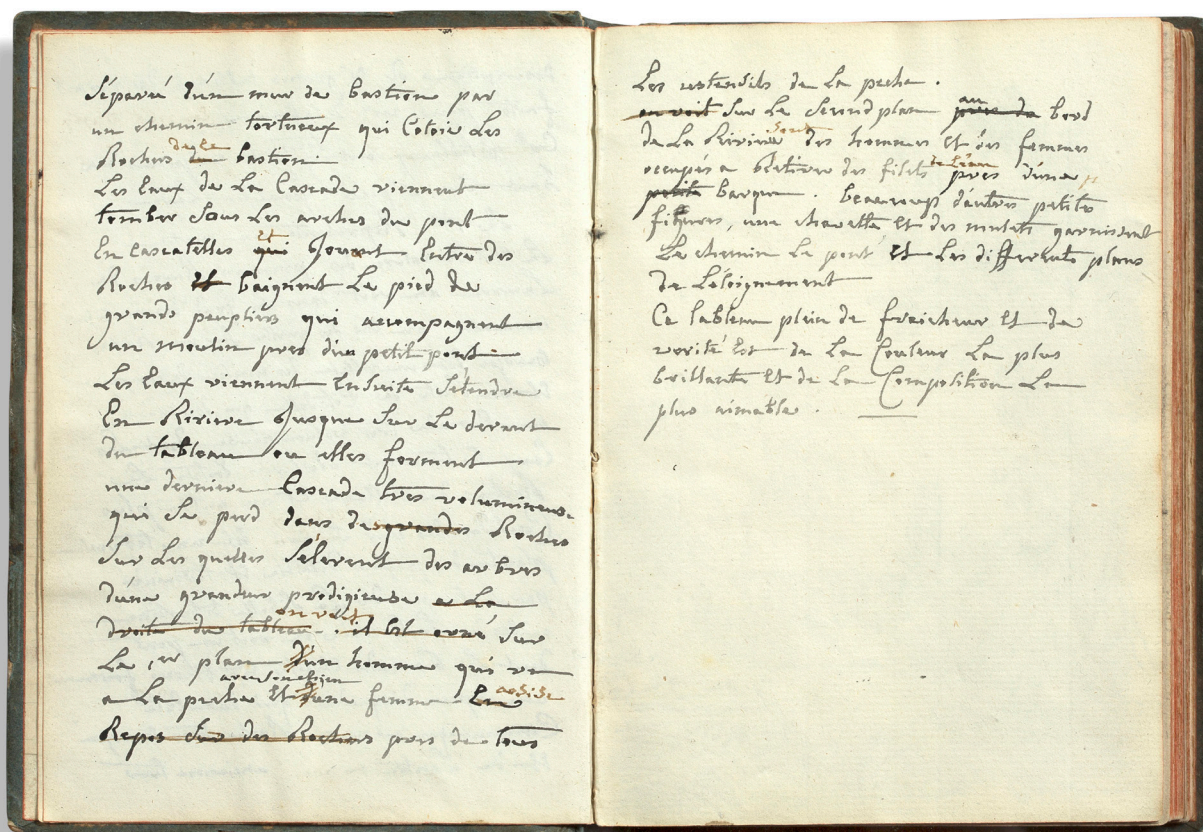 Séparé d'un mur de bastion par
un chemin tortueux qui Cotoie Les
Roches de ce bastion
Les Eaux de La Cascade viennent
tomber Sous Les arches du pont
En Cascatelles qui Et Jouent Entre des
Roches Et baignent Le pied de
grands peupliers qui accompagnent
un moulin pres d'un petit pont
Les Eaux viennent Ensuite S'étendre
En Riviere Jusque Sur Le devant
du tableau ou elles forment
une derniere Cascade très volumineuse
qui Se perd dans des grandes Roches
Sur Les quelles S'élevent des arbres
d'une grandeur prodigieuse a La
droite du tableau. on voit il Est orné Sur
Le 1er plan d'un homme qui va
a La peche avec son chien Et d'une femme En assise
Repos Sur des Rochers pres de tous
Les ustensils de La peche.
on voit Sur Le Second plan pres du au bord
de La Riviere Sont des hommes Et des femmes
occupés a Retirer des filets de L'eau pres d'une
petite barque. beaucoup d'autres petites
figures, une charette Et des mulets garnissent
Le chemin Le pont Et Les differents plans
de L'éloignement
Ce tableau plein de fraicheur Et de
verité Est de La Couleur La plus
brillante Et de La Composition La
plus aimable.